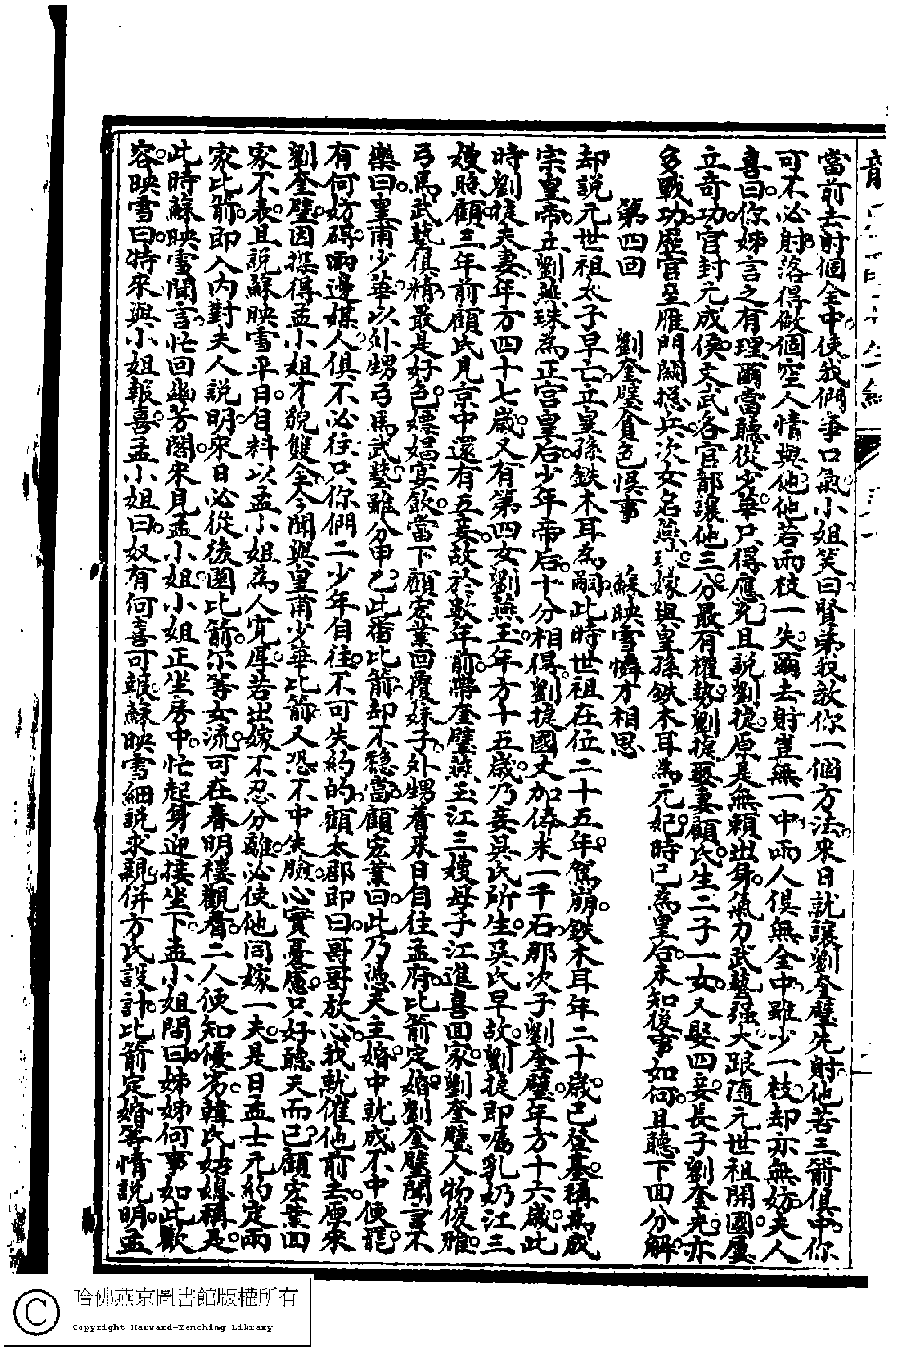 當前去射個金中使我們爭口氣小姐笑曰賢弟我敎你一個方法來日就讓劉奎璧先射他若三箭俱中你
可不必射落得做個空人情與他他若兩枝一失爾去射豈無一中兩人俱無全中雖少一枝却亦無妨夫人
喜曰你姊言之有理爾當聽從少華只得應允且說劉捷原是無賴出身氣力武藝强大跟隨元世祖開國屢
立奇功官封元成侯文武各官都讓他三分最有權勢劉捷娶妻顧氏生二子一女又娶四妾長子劉奎光亦
多戰功歷官至雁門關總兵次女名燕珠嫁與皇孫鉄木耳為元妃時已為皇后未知後事如何且聽下回分解
第四回 劉奎璧貪色悞事 蘇映雪憐才相思
却說元世祖太子早亡立皇孫鉄木耳為嗣此時世祖在位二十五年駕崩鉄木耳年二十歲已登基稱為成
宗皇帝立劉燕珠為正宮皇后少年帝后十分相得劉捷國丈加俸米一千石那次子劉奎璧年方十六歲此
時劉捷夫妻年方四十七歲又有第四女劉燕玉年方十五歲乃妾吳氏所生吳氏早故劉捷即囑乳奶江三
嫂照顧三年前顧氏見京中還有五妾故於數年前帶奎璧燕玉江三嫂母子江進喜回家劉奎璧人物俊雅
弓馬武藝俱精最是好色嫖娼宴飲當下顧宏業回覆妹子外甥着來日自往孟府比箭定婚劉奎璧聞言不
樂曰皇甫少華以外甥弓馬武藝難分甲乙此番比箭却不穩當顧宏業曰此乃憑天主婚中就成不中便罷
有何妨碍兩邊媒人俱不必往只你們二少年自往不可失約的顧太郡即曰哥哥放心我就催他前去原來
劉奎璧因探得孟小姐才貌雙全今聞與皇甫少華比箭又恐不中失臉心實憂慮只好聽天而已顧宏業回
家不表且說蘇映雪平日自料以孟小姐為人寬厚若出嫁不忍分離必使他同嫁一夫是日孟士元約定兩
家比箭即入內對夫人說明來日必從後園比箭尔等女流可在春明樓觀看二人便知優劣韓氏姑媳稱是
此時蘇映雪聞言忙回幽芳閣來見孟小姐小姐正坐房中忙起身迎接坐下孟小姐問曰姊姊何事如此歡
容映雪曰特來與小姐報喜孟小姐曰奴有何喜可報蘇映雪細說求親併方氏設計比箭定婚等情說明孟
哈佛燕京圖書館版權所有
Copyright Harvard-Yenching Library